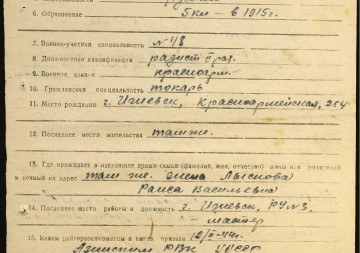 6. Образование 5 кл - в 1915 г.
7. Военно-учетная специальность № 48
8. Должностная квалификация радист
9. Военное звание красноарм.
10. Гражданская специальность токарь
11. Место рождения г. Ижевск, Красноармейская, 254
12. Последнее место жительства там же.
13. Где проживает в настоящее время семья (фамилия, имя, отчество) жены или родителей
и точный их адрес там же. жена Лыскова
Раиса Васильевна
14. Последнее место работы и должность г. Ижевск, РУ № 3,
- мастер
15. Каким райгорвоенкоматом и число призыва
Азинским РВК